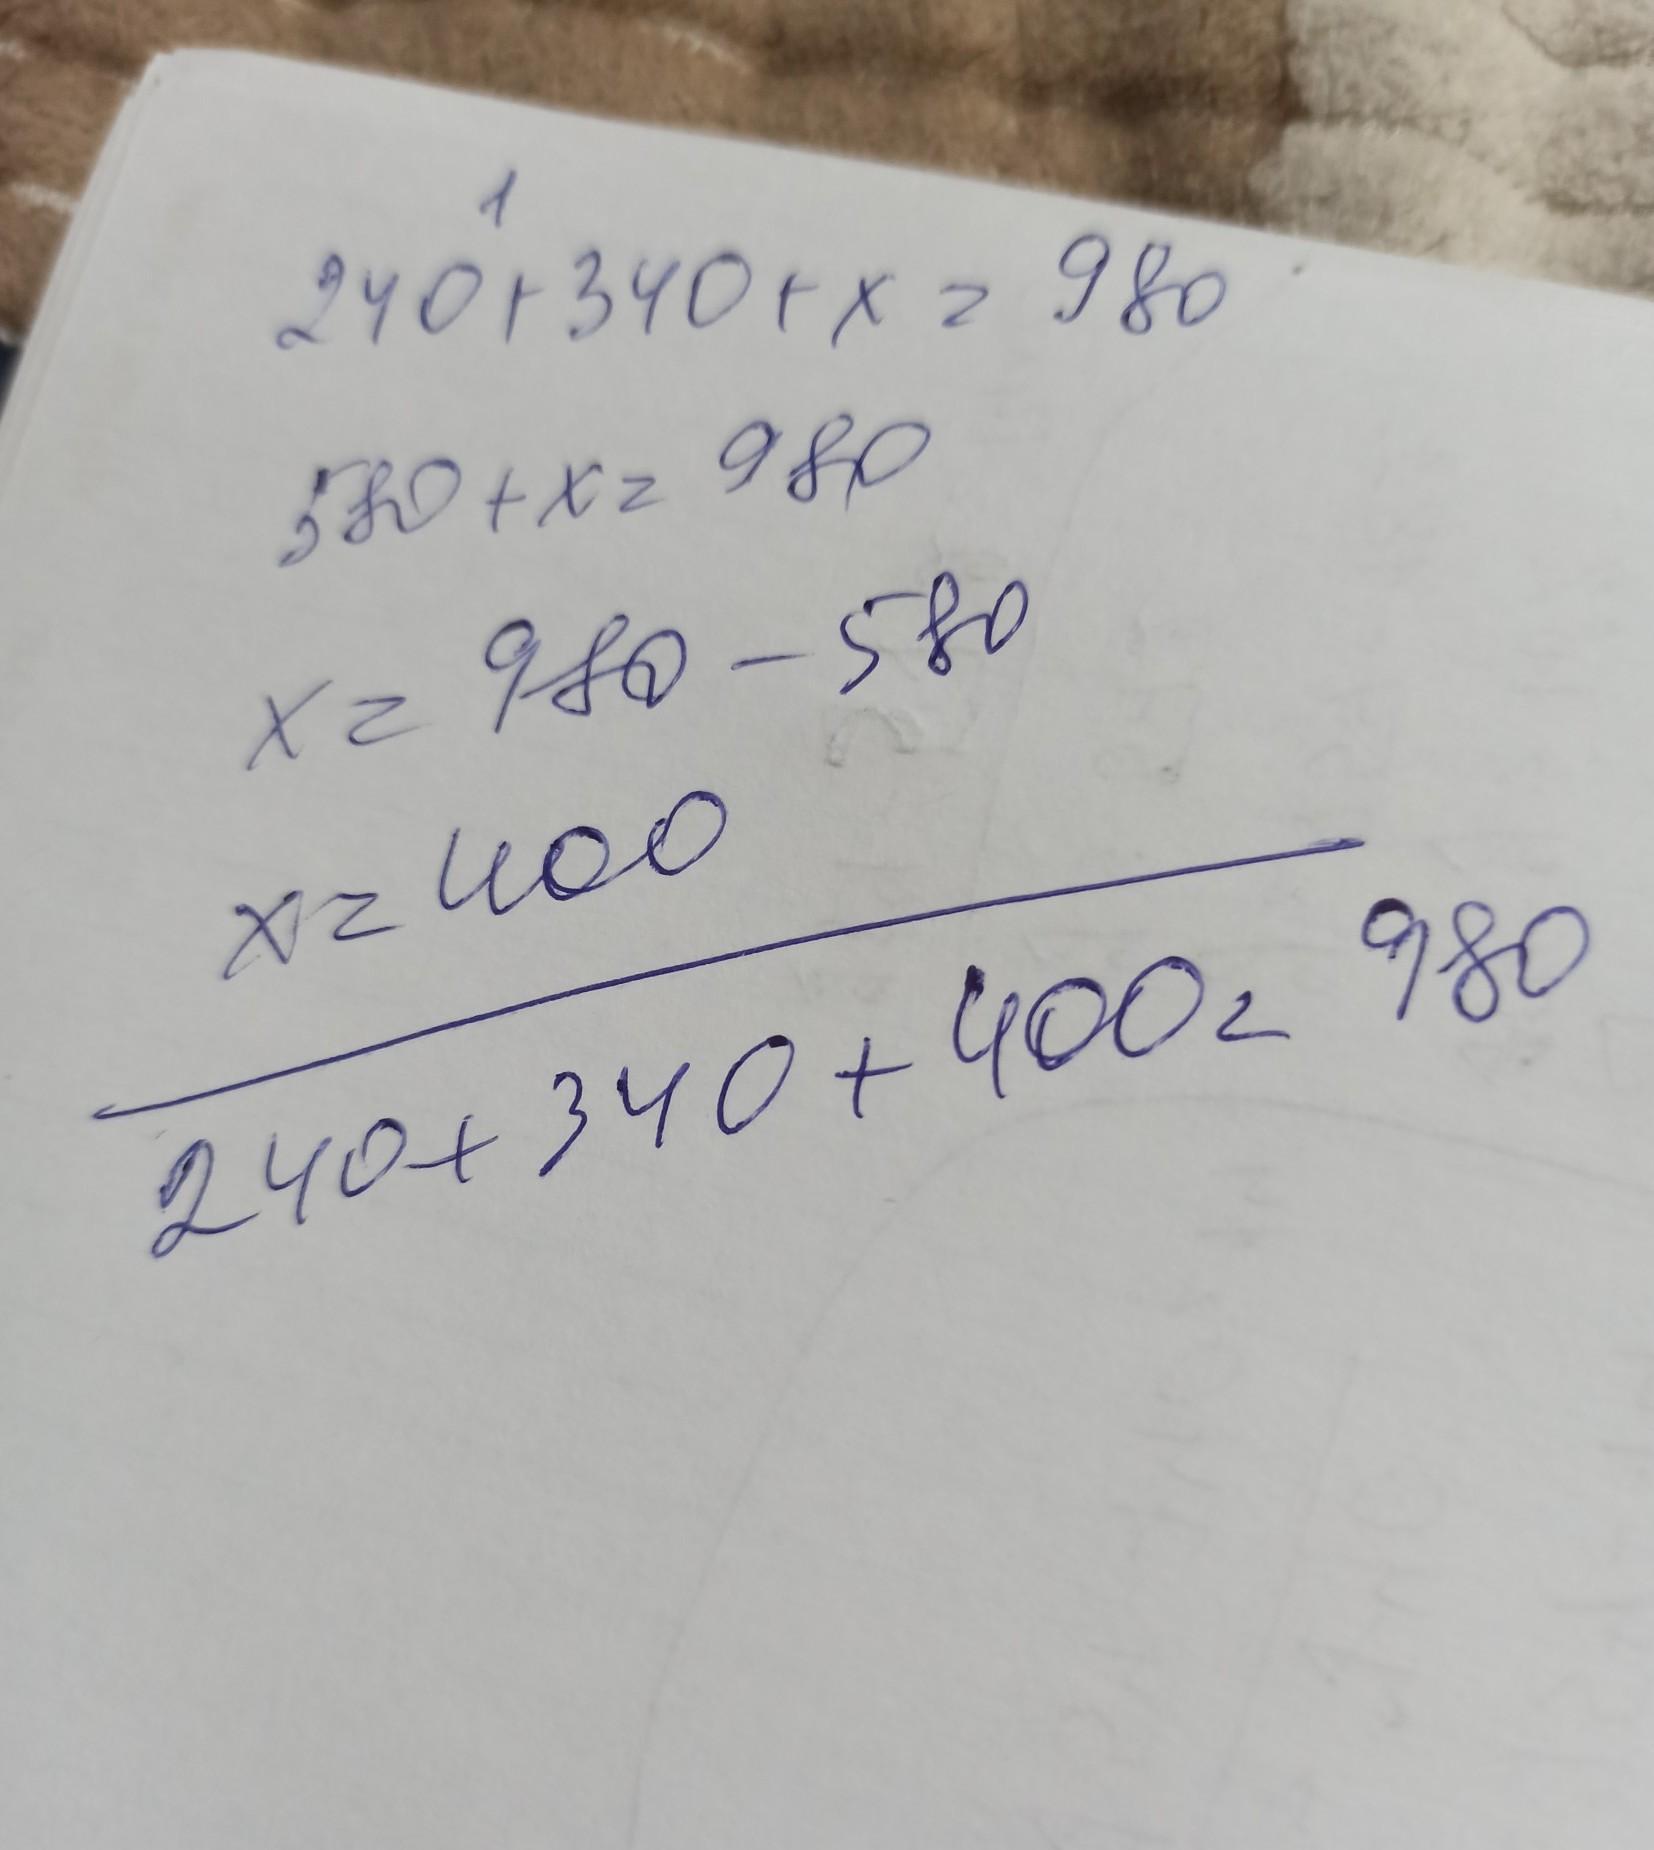 1
240+340+x=980
580+x=980
x=980-580
x=400
240+340+400=980